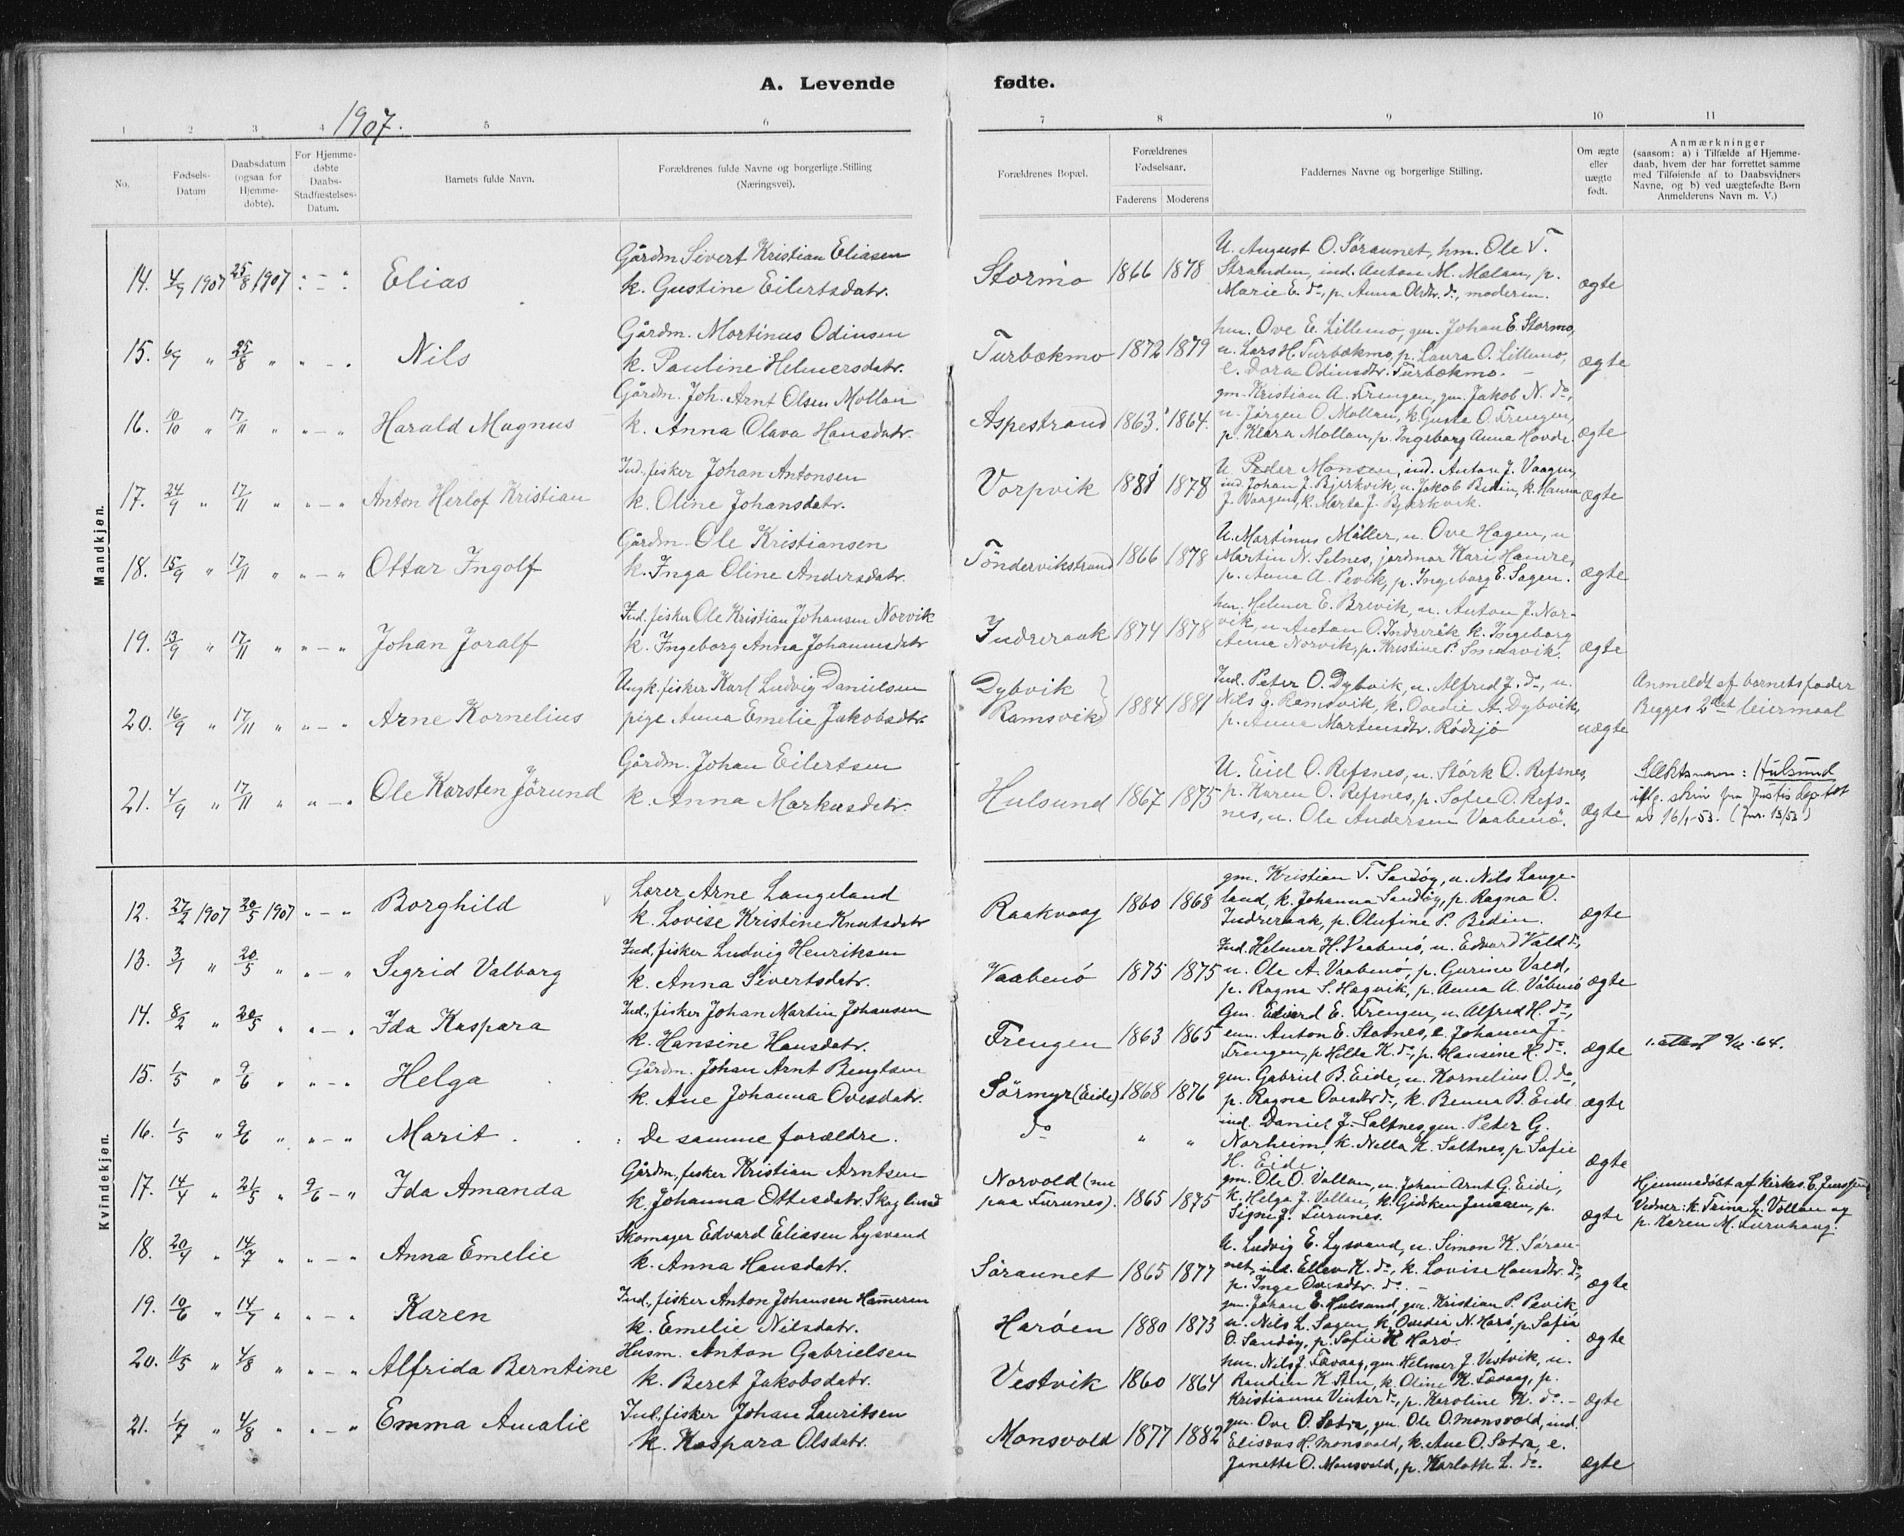 A. Levende fødte.
1907.
1 2 3 4 5 6 7 8 9 10 11
No.
Fødsels-Datum
Daabsdatum (ogsaa for Hjemme-døbte).
For Hjemme-døbte Daabs-Stadfæstelses-Datum.
Barnets fulde Navn.
Forældrenes fulde Navne og borgerlige Stilling (Næringsvei).
Forældrenes Bopæl.
Forældrenes Fødselsaar.
Faderens Moderens
Faddernes Navne og borgerlige Stilling.
Om ægte eller uægte født.
Anmærkninger
(saasom: a) i Tilfælde af Hjemme-
daab, hvem der har forrettet samme
med Tilføiende af to Daabsvidners
Navne, og b) ved uægtefødte Børn
Anmelderens Navn m. V.)
Mandkjøn.
14. 4/7 1907 25/8 1907 Elias
Gårdm. Sivert Kristian Eliasen
k. Gustine Eilertsdatr.
Stormo 1866 1878
U. August O. Søraunet, hm. Ole T.
Stranden, ind. Anton M. Mælan, p.
Marie E. do, p. Anna Olsdtr. do, moderen.
ægte
15. 6/7 " 25/8 " Nils
Gårdm. Mortinus Odinsen
k. Pauline Helmersdatr.
Turbækmo 1872 1879
hm. Ove E. Lillemo, gm. Johan E. Stormo,
u. Lars H. Turbækmo, p. Laura O. Lillemo,
e. Dora Odinsdtr. Turbækmo.
ægte
16. 10/10 " 17/11 " Harald Magnus
Gårdm. Joh. Arnt Olsen Mollan
k. Anna Olava Hansdatr.
Aspestrand 1863 1864.
gm. Kristian A. Frengen, gm. Jakob N. do,
u. Jørgen O. Mollan, k. Gusta O. Frengen,
p. Klara Mollan, p. Ingeborg Anna Hovde.
ægte
17. 24/9 " 17/11 " Anton Herlof Kristian
Ind., fisker Johan Antonsen
k. Oline Johansdatr.
Vorpvik 1881 1878
U. Peder Monsen, ind. Anton J. Vaagen,
ind. Johan J. Bjerkvik, u. Jakob Bedin, k. Hanna
J. Vaagen, k. Marta J. Bjerkvik.
ægte
18. 15/9 " 17/11 " Ottar Ingolf
Gårdm. Ole Kristiansen
k. Inga Oline Andersdatr.
Töndervikstrand 1866 1878
U. Martinus Müller, u. Ove Hagen, u.
Martin N. Selnes, jordmor Kari Hamre,
p. Anna A. Pevik, p. Ingeborg E. Sagen.
ægte
19. 13/9 " 17/11 " Johan Joralf
Ind., fisker Ole Kristian Johansen Norvik
k. Ingeborg Anna Johannesdatr
Indreraak 1874 1878
hm. Helmer E. Brevik, u. Anton J. Nor-
vik, u. Anton O. Indreråk k. Ingeborg
Anna Norvik, p. Kristine P.
ægte
20. 16/9 " 17/11 " Arne Kornelius
Ungk. fisker Karl Ludvig Danielsen
pige Anna Emelie Jakobsdtr.
Dybvik
Ramsvik 1884 1881
Ind. Peter O. Dybvik, u. Alfred J. do, u.
Nils G. Ramsvik, k. Ovedie A. Dybvik,
p. Anna Martinsdtr. Rødsjø
uægte
Anmeldt af barnets fader
Begges 2det leiermaal
21. 4/9 " 17/11 " Ole Karsten Jörund
Gårdm. Johan Eilertsen
k. Anna Markusdatr.
Hulsund 1867 1875
U. Eid O. Refsnes, u. Størk O. Refsnes,
p. Karen O. Refsnes, p. Sofie O. Refs-
nes, u. Ole Andersen Vaabenö.
ægte
Slektsnavn: Hulsund
iflg. skriv fra Justisdep'tet
av 16/1-53. (Jnr. 13/53)
Kvindekjøn.
12. 27/2 1907 20/5 1907 Borghild
Lærer Arne Langeland
k. Lovise Kristine Knutsdatr
Raakvaag 1860 1868
gm. Kristian T. Sandöy, u. Nils Lange-
land, k. Johanna Sandöy, p. Ragna O.
Indreraak, p. Olufine P. Bedin.
ægte
13. 3/1 " 20/5 " Sigrid Valborg
Ind., fisker Ludvig Henriksen
k. Anna Sivertsdatr.
Vaabenö 1875 1875
Ind. Helmer H. Vaabenö, u. Edvard Vald do,
u. Ole A. Vaabenö, p. Gurine Vald,
p. Ragna S. Hægvik, p. Anna A. Våbenö
ægte
14. 8/2 " 20/5 " Ida Kaspara
Ind., fisker Johan Martin Johansen
k. Hansine Hansdatr.
Frengen 1863 1865
Gm. Edvard E. Frengen, u. Alfred H. do,
em. Anton E. Statnes, e. Johanna J.
Frengen, p. Hilda K. do, p. Hansine H. do.
ægte
15. 1/5 " 9/6 " Helga
Gårdm. Johan Arnt Bengtsen
k. Ane Johanna Ovesdatr.
Sörmyr (Eide) 1868 1876
gm. Gabriel B. Eide, u. Kornelius O. do,
p. Ragna Ovesdtr do, k. Benna B. Eide
ægte
16. 1/5 " 9/6 " Marit
De samme forældre.
do " "
ind. Daniel J. Saltnes, gm. Peter G.
Norheim, k. Nella K. Saltnes, p. Sofie
H. Eide.
ægte
17. 14/4 " 21/5 " 9/6 Ida Amanda
Gårdm., fisker Kristian Arntsen
k. Johanna Ottesdatr. Skaglund
Norvold (nu
paa Furunes). 1865 1875
gm. Ole O. Vollan, u. Johan Arnt G. Eide,
k. Helga J. Vollan, k. Gidsken Jenssen, p.
Signe J. Furunes.
ægte
Hjemmedöbt af kirkes. C. Jenssen
Vidner: k. Trina L. Vollan og
p. Karen M. Furuhaug.
18. 20/4 " 14/7 " Anna Emelie
Skomager Edvard Eliasen Lysvand
k. Anna Hansdatr.
Søraunet 1865 1877
U. Ludvig E. Lysvand, u. Simon K. Sørau-
net, ind. Ellev K. do, k. Lovise Hansdtr. do,
p. Inge Ovesdtr. do.
ægte
19. 10/6 " 14/7 " Karen
Ind., fisker Anton Johansen Hameren
k. Emelie Nilsdatr.
Harøen 1880 1873
gm. Johan E. Hulsund, gm. Kristian P. Pevik,
u. Nils L. Sagen, k. Ovedia N. Harö, p. Sofia
O. Sandöy, p. Sofie K Harö.
ægte
20. 11/5 " 4/8 " Alfrida Berntine
Husm. Anton Gabrielsen
k. Beret Jakobsdatr.
Vestvik 1860 1864
hm. Nils J. Fævaag, gm. Helmer J. Vestvik, u.
Randin K. Aun, k. Oline K. Fævaag, p.
Kristianna Vinter do, p. Karoline K. do.
ægte
21. 1/7 " 4/8 " Emma Amalie
Ind., fisker Johan Lauritsen
k. Kaspara Olsdatr.
Monsvold 1877 1882
gm. Ove O. Sætra, gm. Ole O. Monsvold, ind.
Eliseus H. Monsvold, k. Ane O. Sætra, e.
Janetta O. Monsvold, p. Karlotte L. do.
ægte